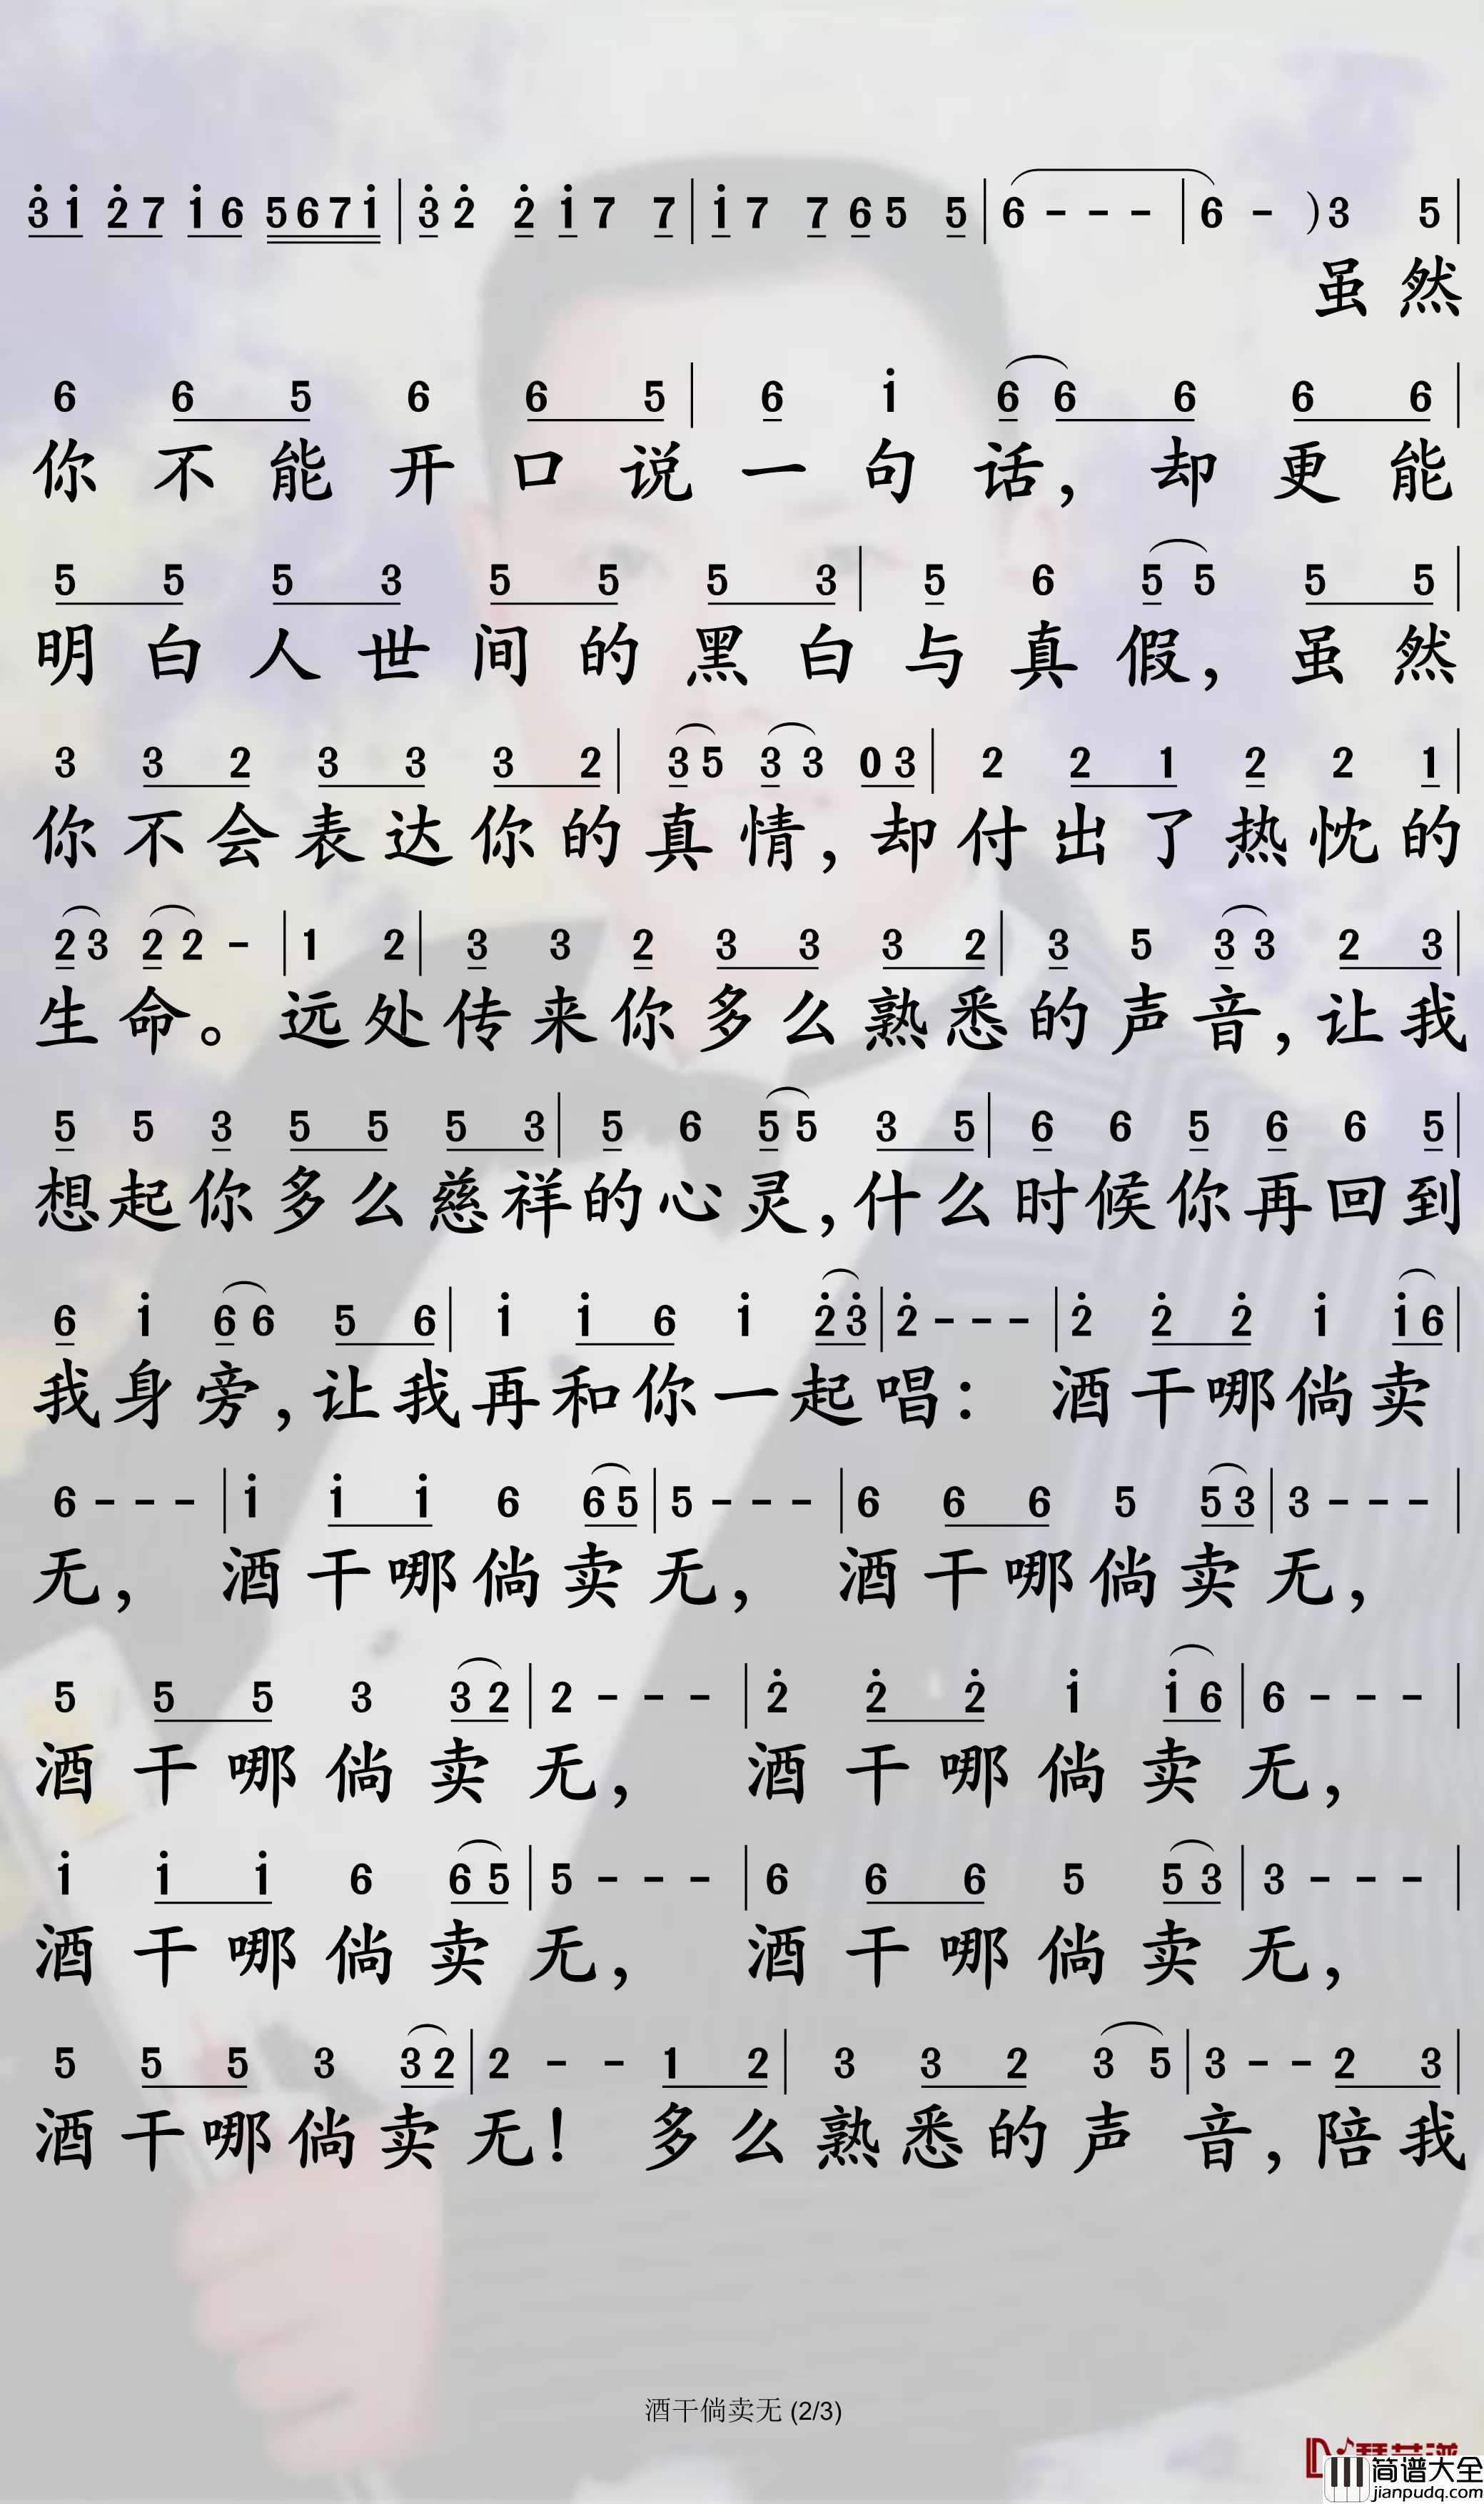 3̇ 1̇ 2̇ 7 1̇ 6 5 6 7 1̇ | 3̇ 2̇ 2̇ 1̇ 7 7 | 1̇ 7 7 6 5 5 | 6 - - - | 6 - ) 3 5 |
虽然
6 6 5 6 6 5 | 6 1̇ 6 6 6 6 6 |
你不能开口说一句话，却更能
5 5 5 3 5 5 5 3 | 5 6 5 5 5 5 |
明白人世间的黑白与真假，虽然
3 3 2 3 3 3 2 | 3 5 3 3 0 3 | 2 2 1 2 2 1 |
你不会表达你的真情，却付出了热忱的
2 3 2 2 - | 1 2 | 3 3 2 3 3 3 2 | 3 5 3 3 2 3 |
生命。远处传来你多么熟悉的声音，让我
5 5 3 5 5 5 3 | 5 6 5 5 3 5 | 6 6 5 6 6 5 |
想起你多么慈祥的心灵，什么时候你再回到
6 1̇ 6 6 5 6 | 1̇ 1̇ 6 1̇ 2̇ 3̇ | 2̇ - - - | 2̇ 2̇ 2̇ 1̇ 1̇ 6 |
我身旁，让我再和你一起唱：酒干哪倘卖
6 - - - | 1̇ 1̇ 1̇ 6 6 5 | 5 - - - | 6 6 6 5 5 3 | 3 - - - |
无，酒干哪倘卖无，酒干哪倘卖无，
5 5 5 3 3 2 | 2 - - - | 2̇ 2̇ 2̇ 1̇ 1̇ 6 | 6 - - - |
酒干哪倘卖无，酒干哪倘卖无，
1̇ 1̇ 1̇ 6 6 5 | 5 - - - | 6 6 6 5 5 3 | 3 - - - |
酒干哪倘卖无，酒干哪倘卖无，
5 5 5 3 3 2 | 2 - - 1 2 | 3 3 2 3 5 | 3 - - 2 3 |
酒干哪倘卖无！多么熟悉的声音，陪我
酒干倘卖无 (2/3)
简谱大全
jianpudq.com